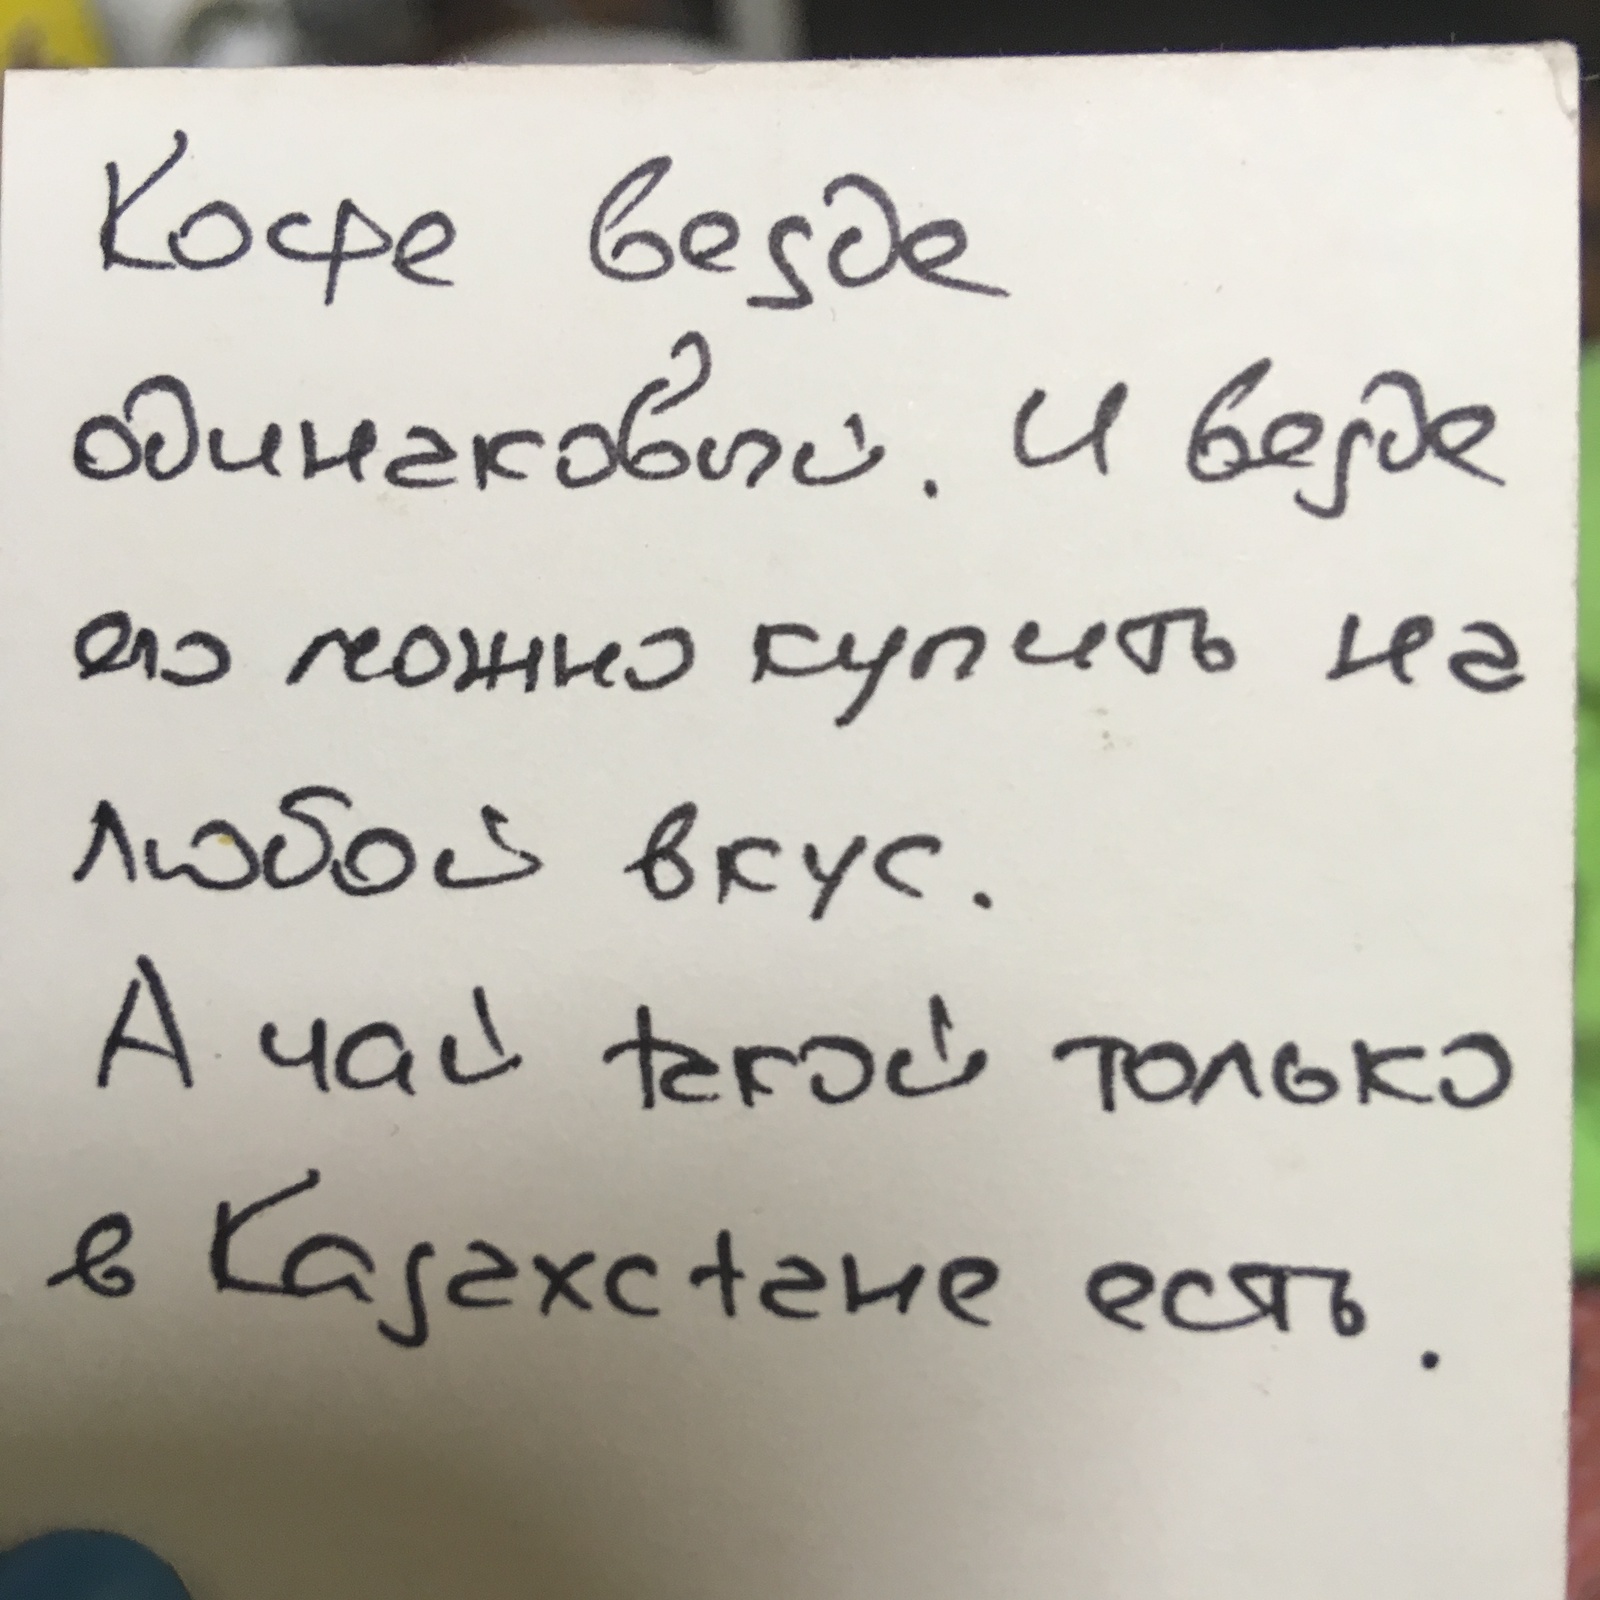 Кофе везде
одинаковый. И везде
его можно купить на
любой вкус.
А чай такой только
в Казахстане есть.